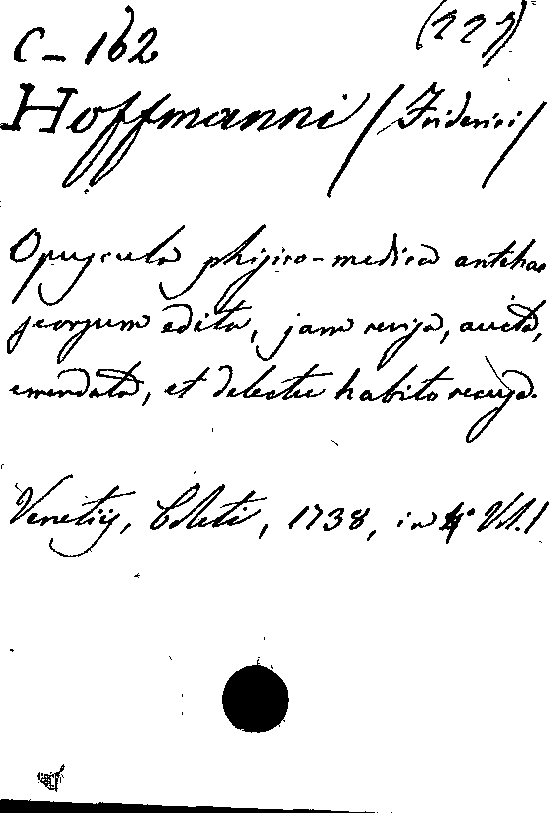 C - 162 (227)
Hoffmanni / Friderici /
Opuscula phisico-medica antehac
seorsum edita, jam revisa, aucta,
emendata, et delectu habito recusa.
Venetiis, Coleti, 1738, in 4° Vol. 1